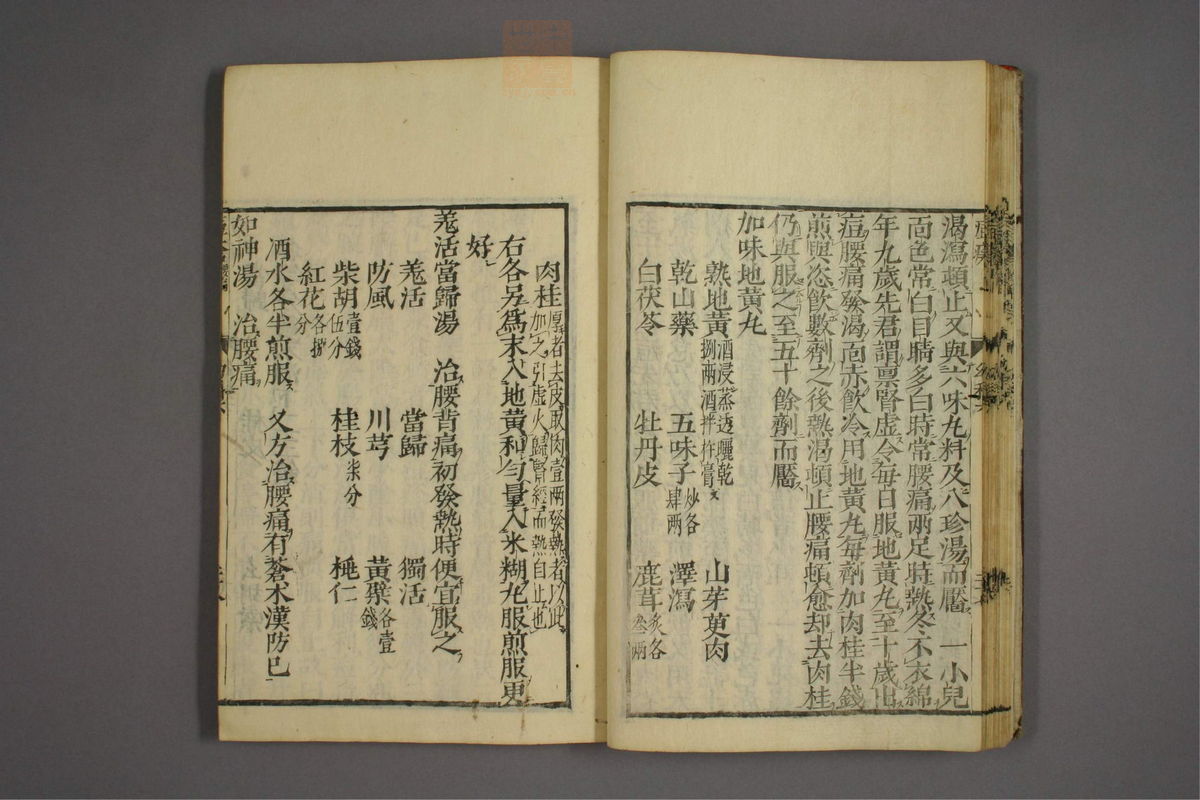 渴瀉頓止又與六味丸料及八珍湯而靨 一小兒
面色常白目睛多白時常腰痛兩足時熱冬不衣綿
年九歲先君謂禀腎虛令每日服地黃丸至十歲出
痘腰痛發渴面赤飲冷用地黃丸每劑加肉桂半錢
煎與恣飲數劑之後熱渴頓止腰痛頓愈却去肉桂
仍與服之至五十餘劑而靨
加味地黃丸
熟地黃捌兩酒浸蒸透曬乾酒拌杵膏 山茱萸肉
乾山藥 五味子炒各肆兩 澤瀉
白茯苓 牡丹皮 鹿茸炙各叁兩
肉桂厚者去皮取肉壹兩發熱者以此加之引虛火歸腎經而熱自止也
右各另爲末入地黃和勻量入米糊丸服煎服更
好
羌活當歸湯 治腰背痛初發熱時便宜服之
羌活 當歸 獨活
防風 川芎 黃蘗各壹錢
柴胡壹錢伍分 桂枝柒分 桃仁
紅花各捌分
酒水各半煎服 又方治腰痛有蒼朮漢防巳
如神湯 治腰痛